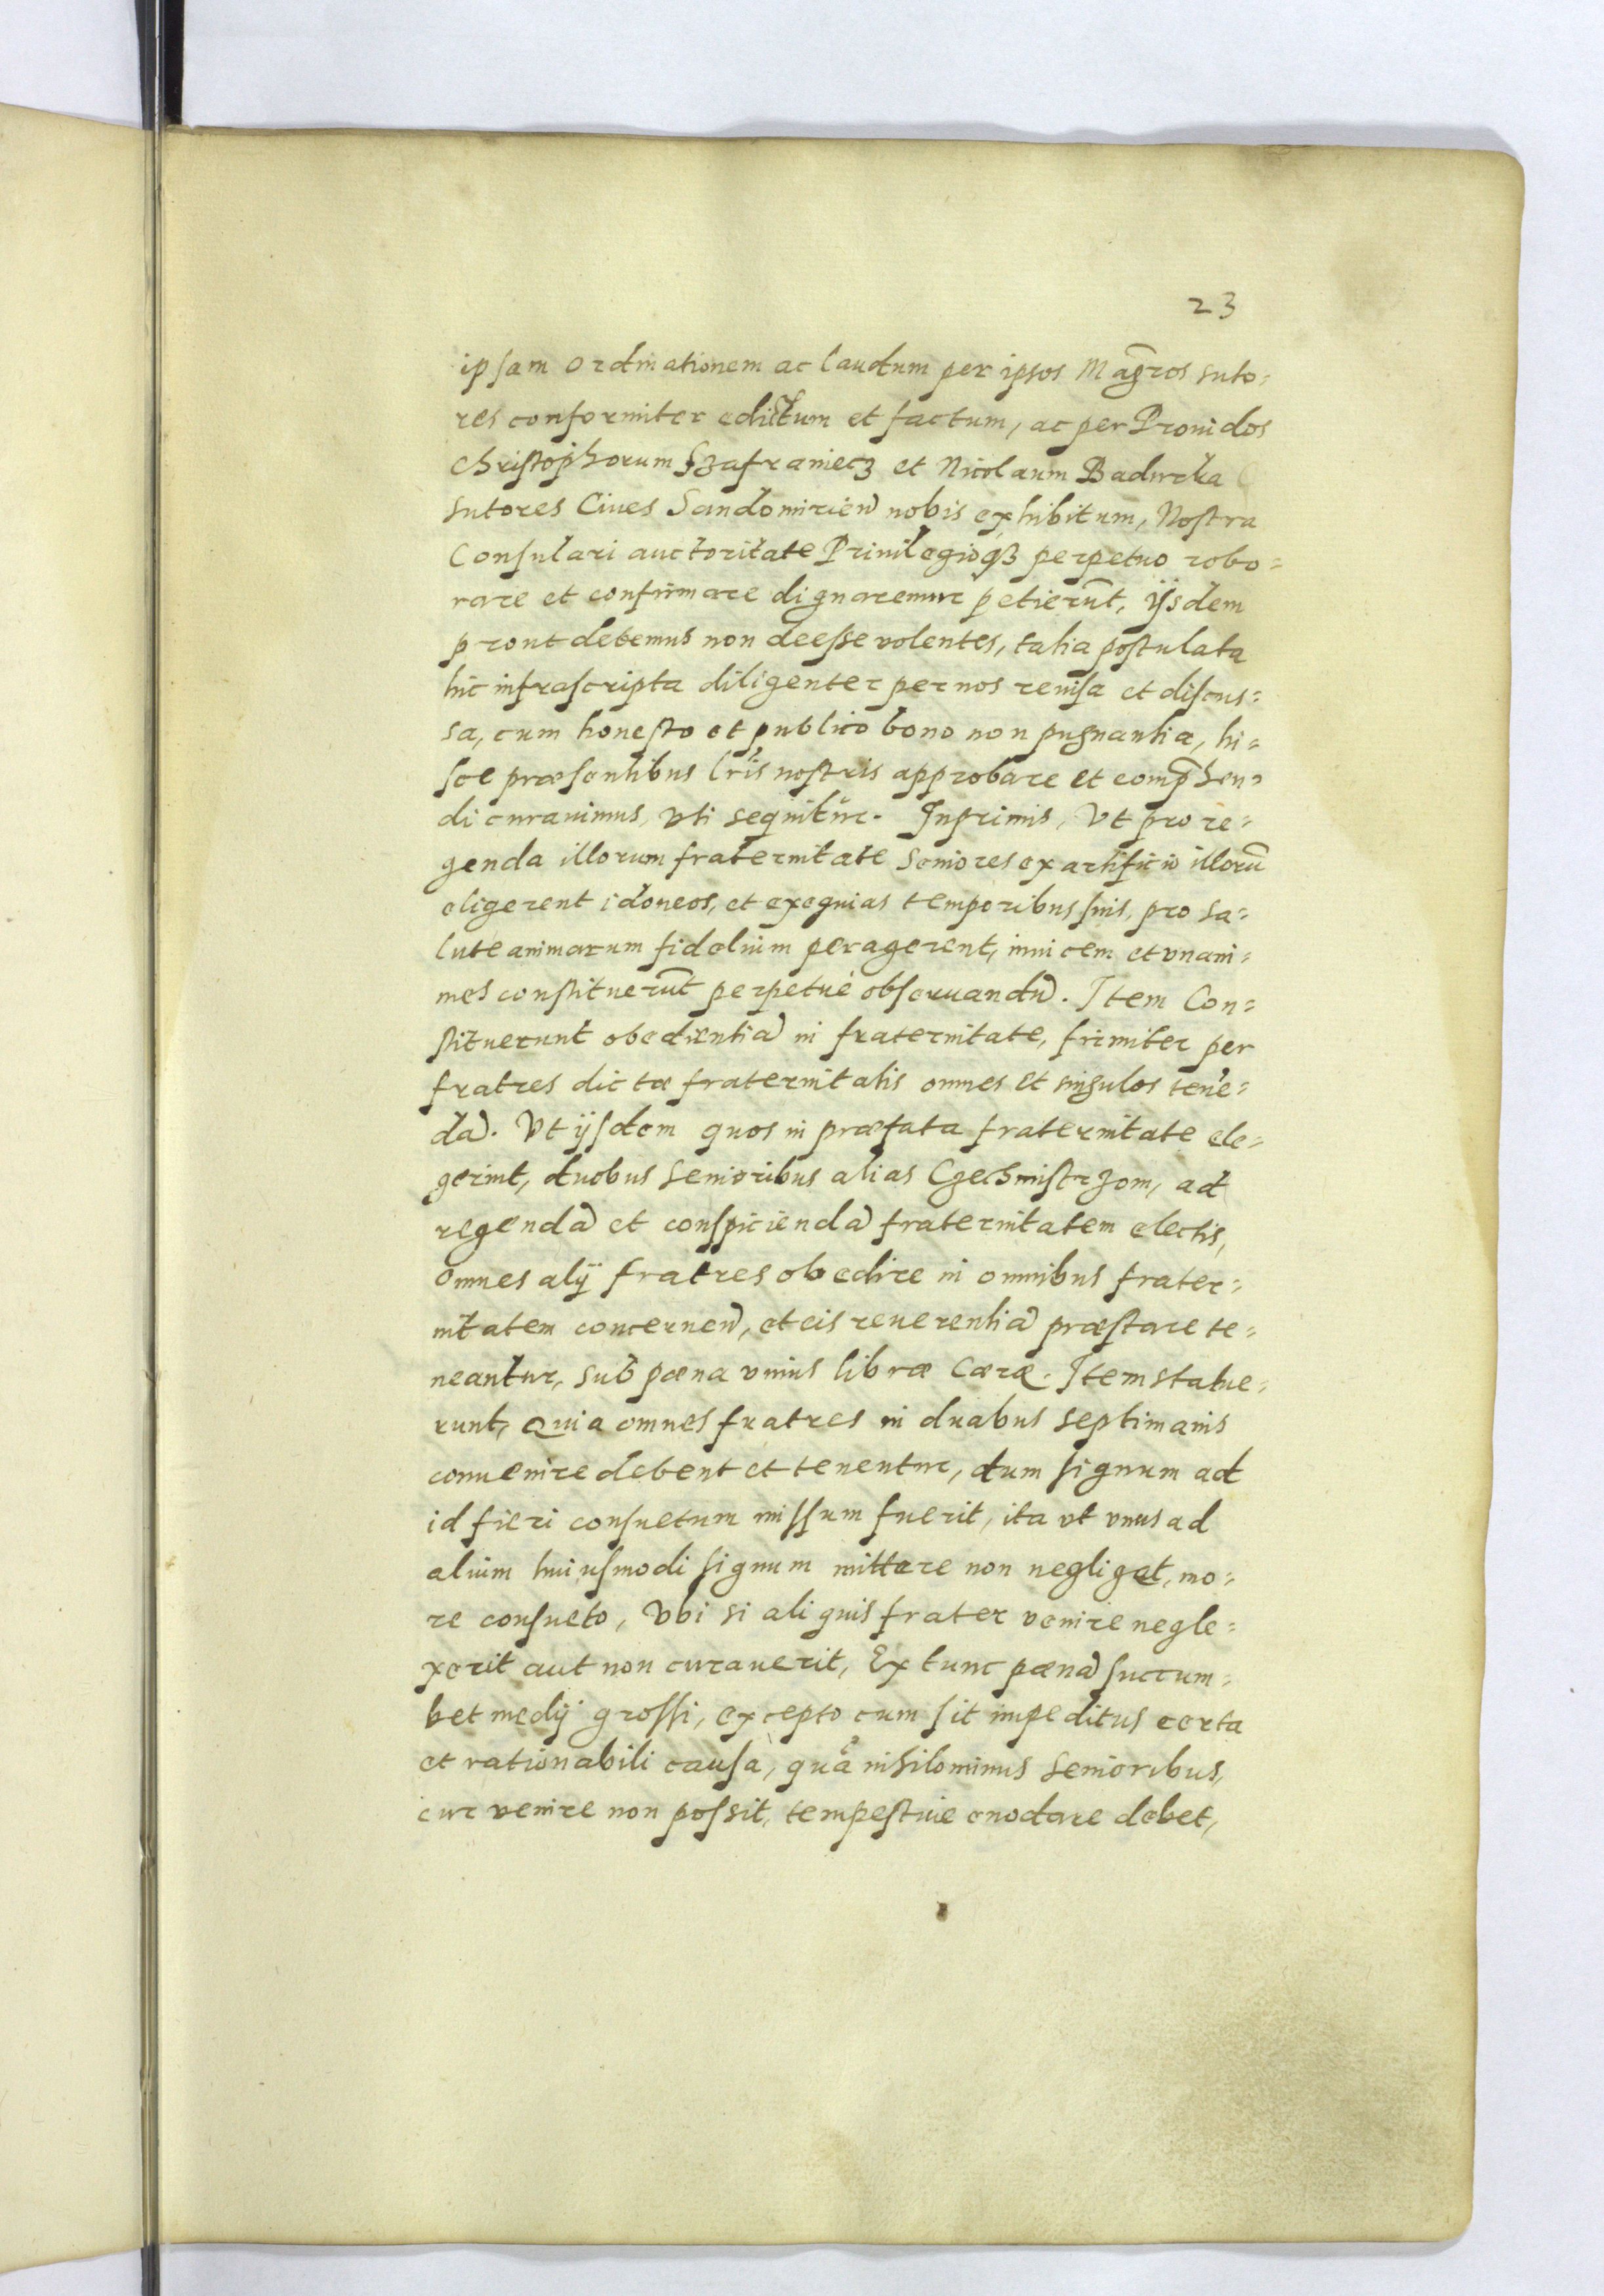 23
ipsam ordinationem ac laudum per ipsos Magros suto=
res conformiter edictum et factum, ac per Prouidos
Christophorum Szafraniecz et Nicolaum Badurka
sutores Ciues Sandomirien nobis exhibitum, Nostra
Consulari auctoritate Priuilegioq3 perpetuo robo=
rare et confirmare dignaremur petierūt, ijsdem
prout debemus non deesse volentes, talia postulata
hic infrascripta diligenter per nos reuisa et discus=
sa, cum honesto et publico bono non pugnantia, hi=
sce præsentibus lris nostris approbare et comp̄hen=
di curauimus, vti sequitur. Inprimis, Vt pro re=
genda illorum fraternitate seniores ex artificio illorū
eligerent idoneos, et exequias temporibus suis, pro sa=
lute animarum fidelium peragerent, inuicem et vnani=
mes constituerūt perpetuè obseruandū. Item Con=
stituerunt obedientiā in fraternitate, firmiter per
fratres dictæ fraternitatis omnes et singulos tene=
dā. Vt ijsdem quos in præfata fraternitate ele=
gerint, duobus senioribus alias Czechmistrzom, ad
regendā et conspiciendā fraternitatem electis,
omnes alij fratres obedire in omnibus frater=
nitatem concernen, et eis reuerentiā præstare te=
neantur, sub pæna vnius libræ Cæræ. Item statue=
runt, Quia omnes fratres in duabus septimanis
conuenire debent et tenentur, dum signum ad
id fieri consuetum missum fuerit, ita vt vnus ad
alium huiusmodi signum mittere non negliget, mo=
re consueto, Vbi si aliquis frater venire negle=
xerit aut non curauerit, Ex tunc pænā succum=
bet medij grossi, excepto cum sit impeditus certa
et rationabili causa, quā nihilominus senioribus,
cur venire non possit, tempestiue enodare debet,